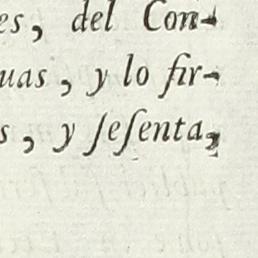 es, del Con-
uas, y lo fir-
s, y ſeſenta,